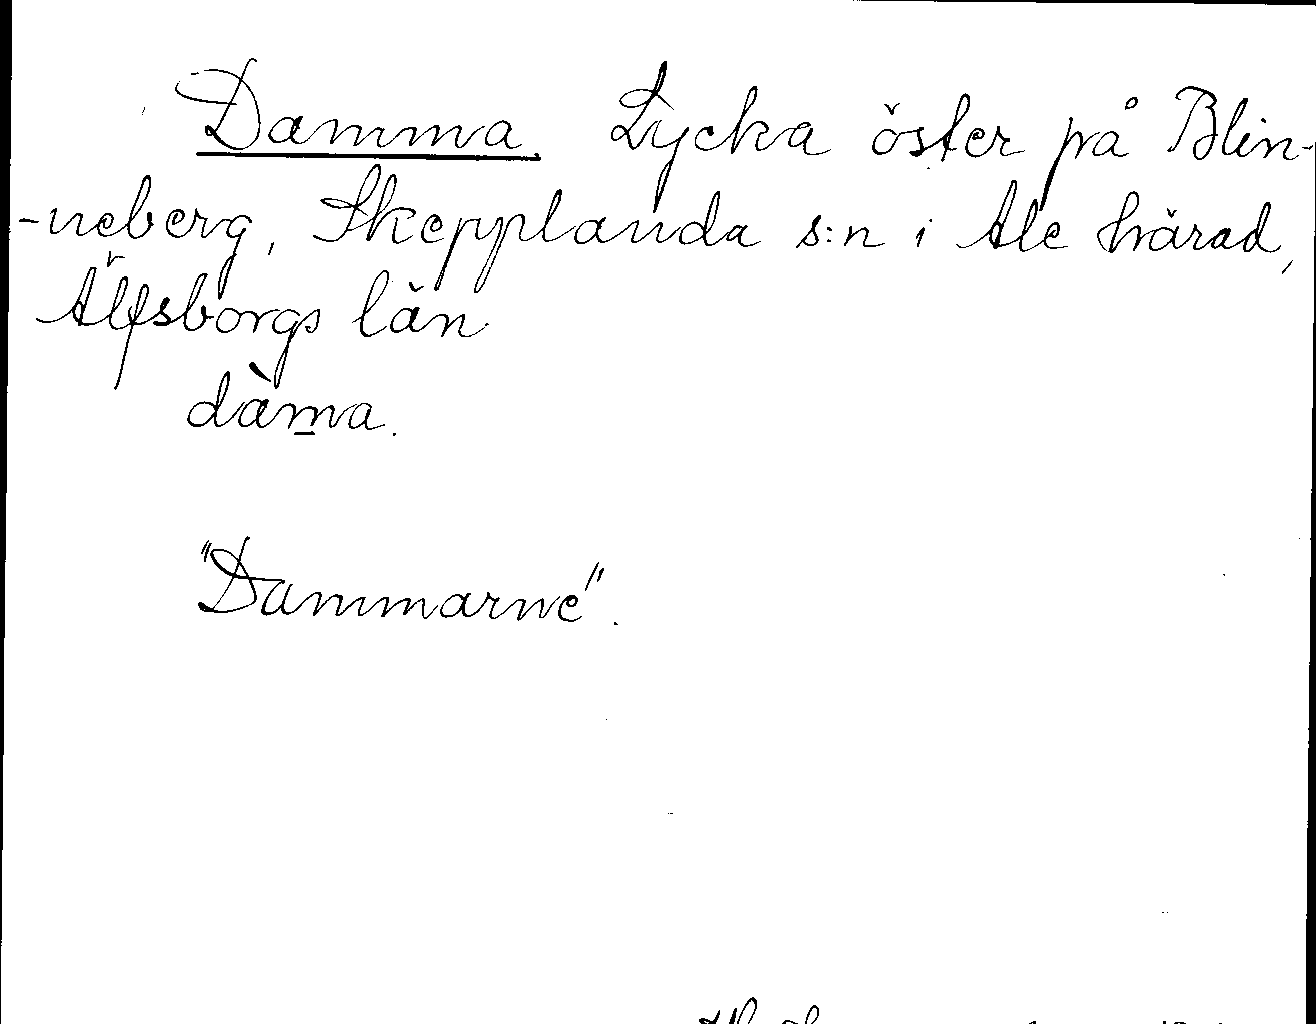 Damma. Lycka öster på Blin-
-neberg, Skepplanda s:n i Ale härad,
Älfsborgs län.
dàm̲a.
"Dammarne".